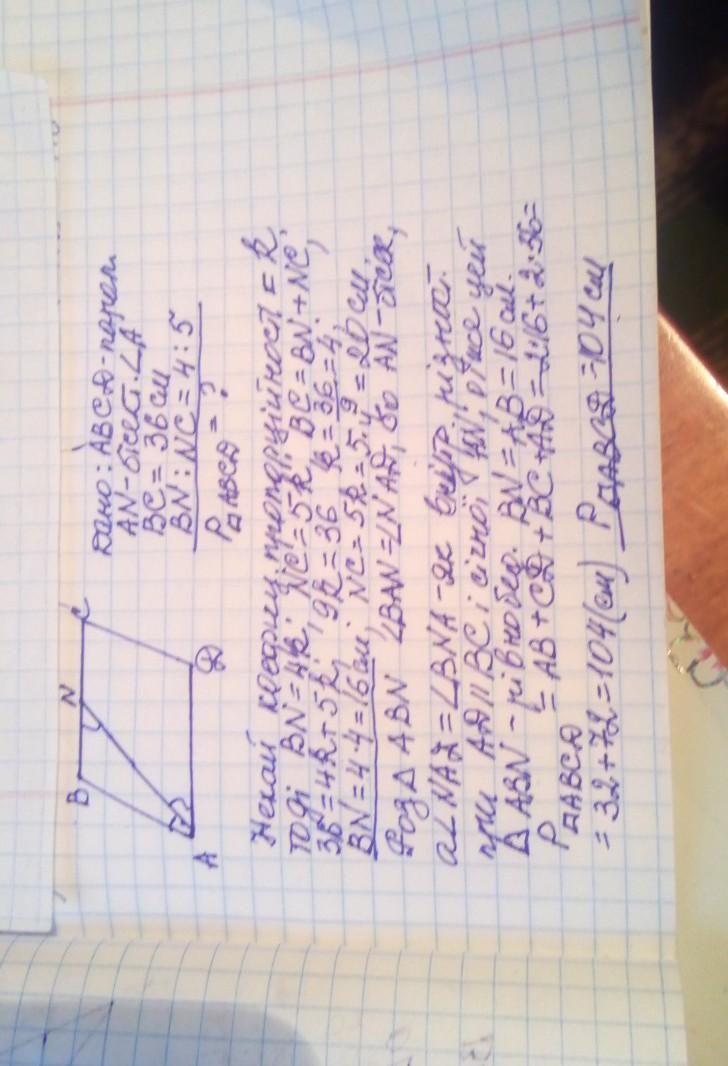 B N C
A D
Дано: ABCD-парал.
AN-бісект. ∠A
BC = 36 см
BN : NC = 4 : 5
P▱ABCD = ?
Нехай коефіц. пропорційності = k
тоді BN = 4k; NC = 5k BC = BN + NC;
36 = 4k + 5k; 9k = 36 k = 36 = 4,
9
BN = 4·4 = 16 см; NC = 5k = 5·4 = 20 см.
Розг △ ABN ∠BAN = ∠NAD, бо AN-бісек,
а ∠NAD = ∠BNA - як внутр. різност.
при AD || BC і січної AN; отже цей
△ ABN - рівнобед. BN = AB = 16 см.
P▱ABCD = AB + CD + BC + AD = 2·16 + 2·36 =
= 32 + 72 = 104 (см) P▱ABCD = 104 см